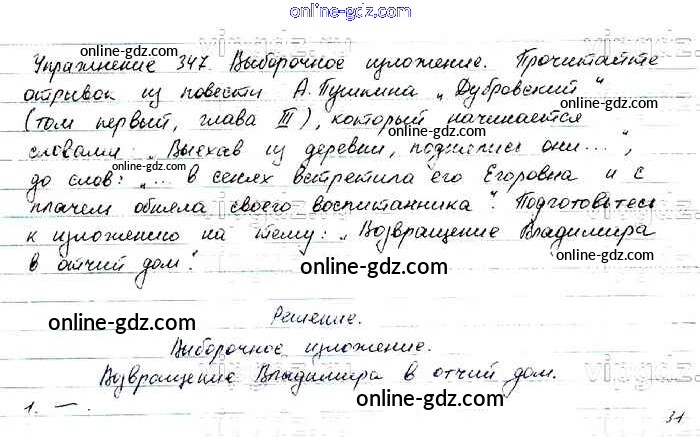 online-gdz.com
Упражнение 347. Выборочное изложение. Прочитайте
отрывок из повести А. Пушкина „Дубровский"
(том первый, глава III), который начинается
словами: „Выехав из деревни, поднялись они...",
до слов: „... в сенях встретила его Егоровна и с
плачем обняла своего воспитанника". Подготовьтесь
к изложению на тему: „Возвращение Владимира
в отчий дом".
Решение.
Выборочное изложение.
Возвращение Владимира в отчий дом.
1. —.
31
online-gdz.com
online-gdz.com
online-gdz.com
online-gdz.com
online-gdz.com
online-gdz.com
online-gdz.com
online-gdz.com
online-gdz.com
online-gdz.com